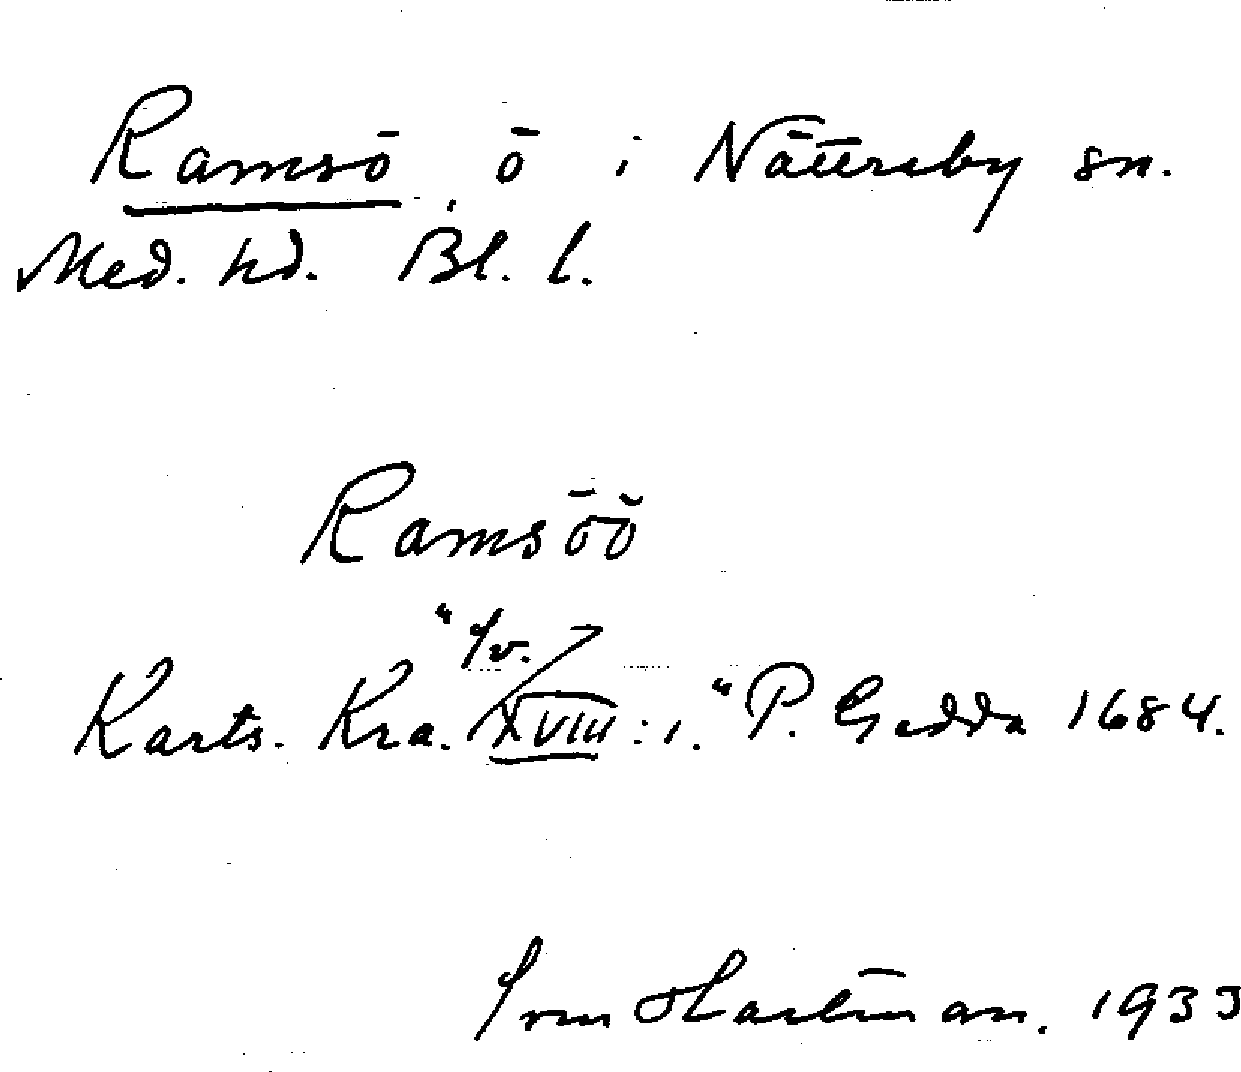 Ramsö, ö i Nättraby sn.
Med. hd. Bl. l.
Ramsöö
"Sv.
Karts. Kra. XVIII:1." P. Gedda 1684.
Hartman. 1933